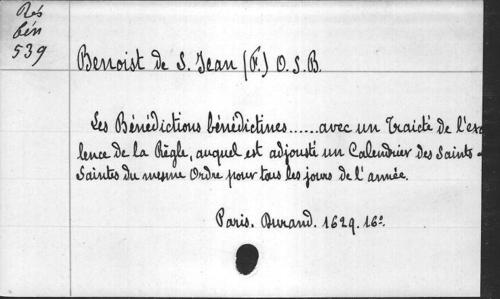 Rés
bén
539
Benoist de S. Jean (F.) O.S.B.
Les Bénédictions bénédictines......avec un Traicté de l'exc
lence de la Règle, auquel est adjousté un Calendrier des Saints
Saintes du mesme Ordre pour tous les jours de l'année.
Paris. Durand. 1629. 16º.